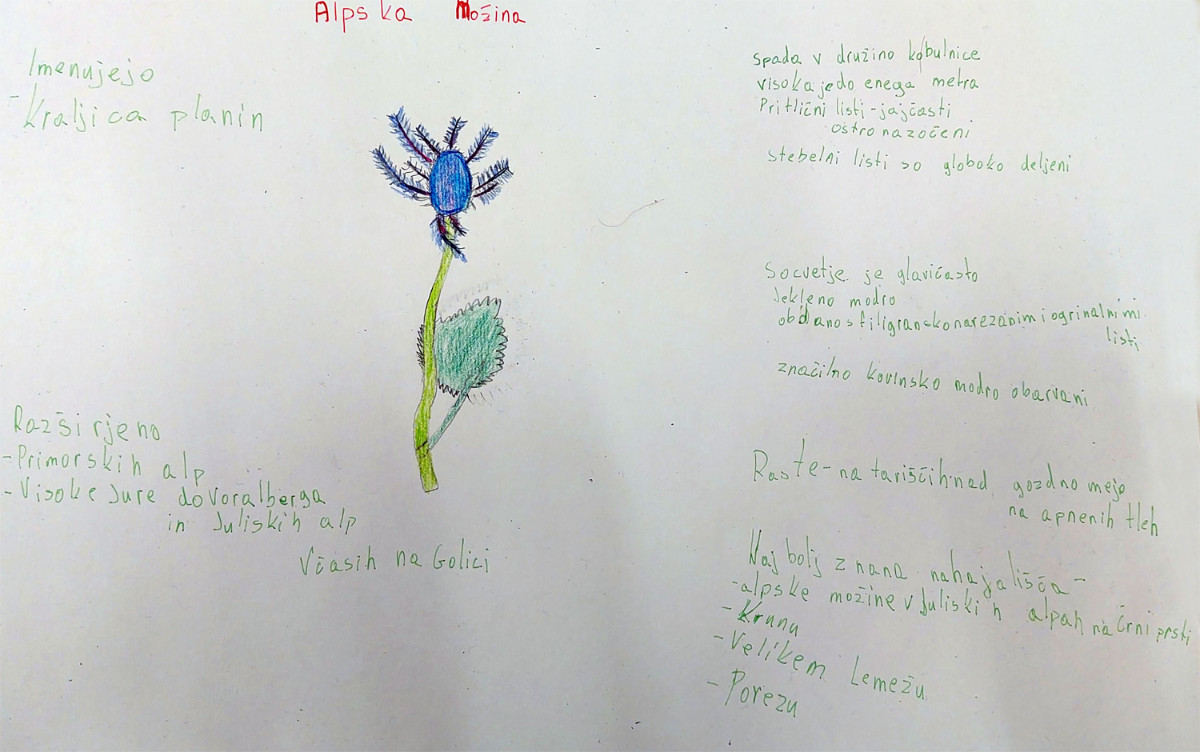 Alpska Možina
Imenujejo
-Kraljica planin
Razširjeno
-Primorskih alp
-Visoke Jure do Voralberga
in Juliskih alp
Včasih na Golici
spada v družino kobulnice
visoka je do enega metra
Pritlični listi-jajčasti
ostro nazočeni
stebelni listi so globoko deljeni
Socvetje je glavičasto
Jekleno modro
obdano s filigransko narezanimi ogrinalnimi
listi
značilno kovinsko modro obarvani
Raste-na tariščih nad gozdno mejo
na apnenih tleh
Naj bolj znana nahajališča-
-alpske možine v Juliskih alpah na črni prsti
-Krunu
-Velikem Lemežu
-Porezu